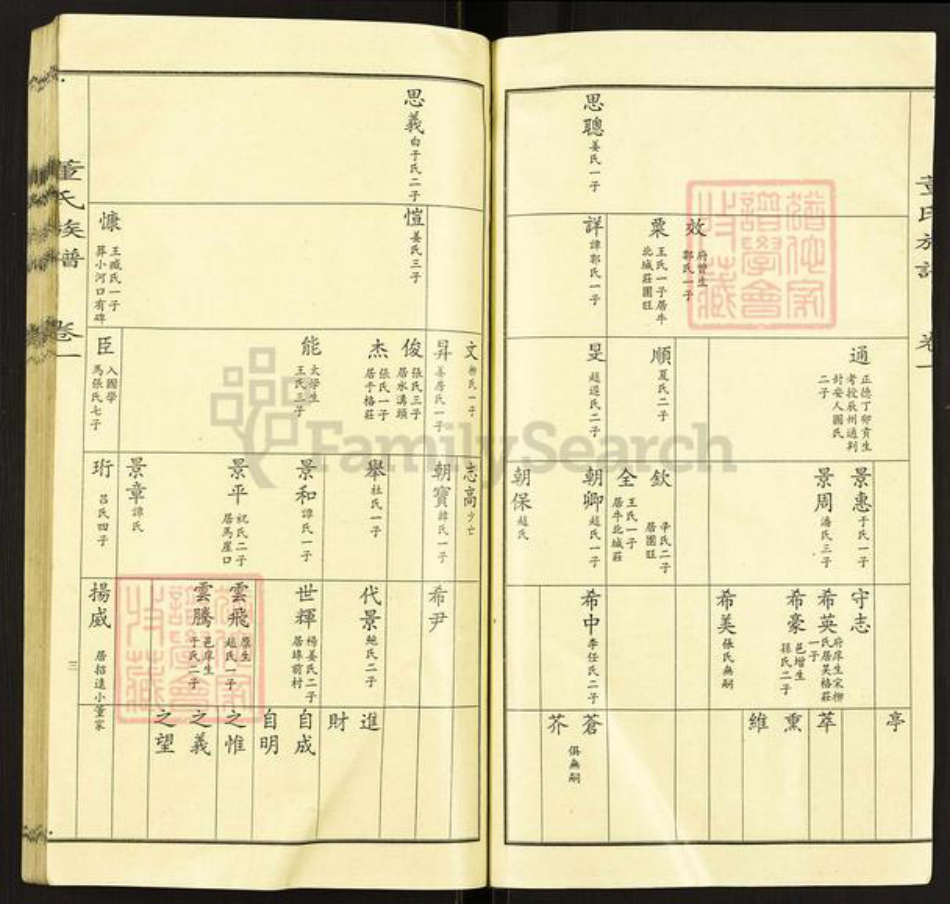 思聰 姜氏一子
效 府曾生 郭氏一子
粟 王氏一子居牛北城莊團旺
詳 譚郭氏一子
通 正德丁卯貢生考授辰州通判封安人國氏二子
順 夏氏二子
旻 趙遲氏二子
景惠 于氏一子
景周 潘氏三子
欽 辛氏二子 居團旺
全 王氏一子 居牛北城莊
朝卿 趙氏一子
朝保 趙氏
守志
希英 府庠生宋柳氏居吴格莊一子
希豪 邑增生 孫氏二子
希美 張氏無嗣
希中 李任氏二子
亭
萃
熏
維
蒼
芥 俱無嗣
董氏族譜
卷一
思義 白于氏二子
愷 姜氏三子
慷 王臧氏一子 葬小河口有碑
文 柳氏一子
昇 姜房氏一子
俊 張氏三子 居水溝頭
杰 張氏一子 居于格莊
能 太學生 王氏三子
臣 入國學 馬張氏七子
志高 少亡
朝寶 韓氏一子
舉 杜氏一子
景和 譚氏一子
景平 祝氏二子 居馬崖口
景章 譚氏
珩 呂氏四子
希尹
代景 鮑氏二子
世輝 楊姜氏二子 居埠前村
雲飛 庠生 趙氏一子
雲騰 邑庠生 于氏二子
揚威 居招遠小董家
進
財
自成
自明
之惟
之義
之望
董氏族譜
卷一
三
FamilySearch